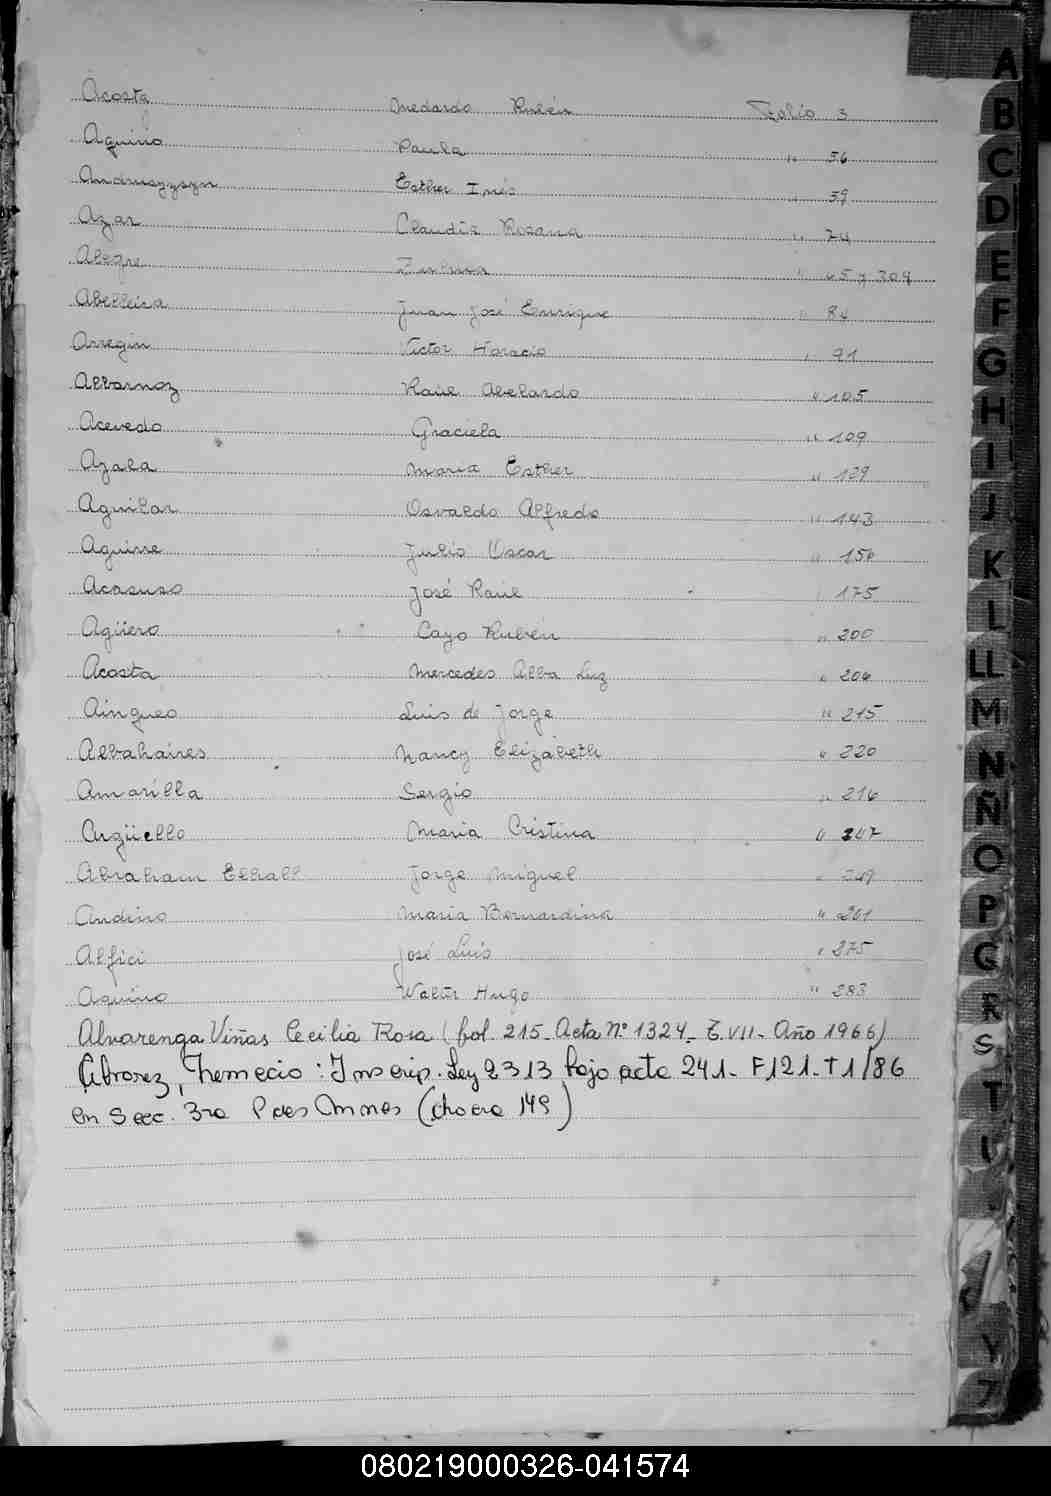 Acosta Medardo Rubén Folio 3
Aquino Paula " 56
Andruszzsyn Esther Inés " 59
Azar Claudia Rosana " 74
Alegre Zulma " 45 y 309
Abelleira Juan José Enrique " 84
Arregin Victor Horacio " 91
Albarnoz Raúl Abelardo " 105
Acevedo Graciela " 109
Ayala Maria Esther " 129
Aguilar Osvaldo Alfredo " 143
Aguirre Julio Oscar " 156
Acasuso José Raúl " 175
Agüero Cayo Rubén " 200
Acosta Mercedes Alba Luz " 206
Aingueo Luis de Jorge " 215
Albahaires Nancy Elizabeth " 220
Amarilla Sergio " 216
Argüello Maria Cristina " 247
Abraham Elhall Jorge Miguel " 249
Andino Maria Bernardina " 261
Alfici José Luis " 275
Aquino Walter Hugo " 283
Alvarenga Viñas Cecilia Rosa (fol. 215- Acta Nº 1324- T. VII- Año 1966)
Alvarez, Nemecio: Inscrip. Ley 2313 bajo acta 241- F121- T1/86
en Secc. 3ra (chacra 149)
A
B
C
D
E
F
G
H
I
J
K
L
LL
M
N
Ñ
O
P
G
R
S
T
Y
Z
080219000326-041574